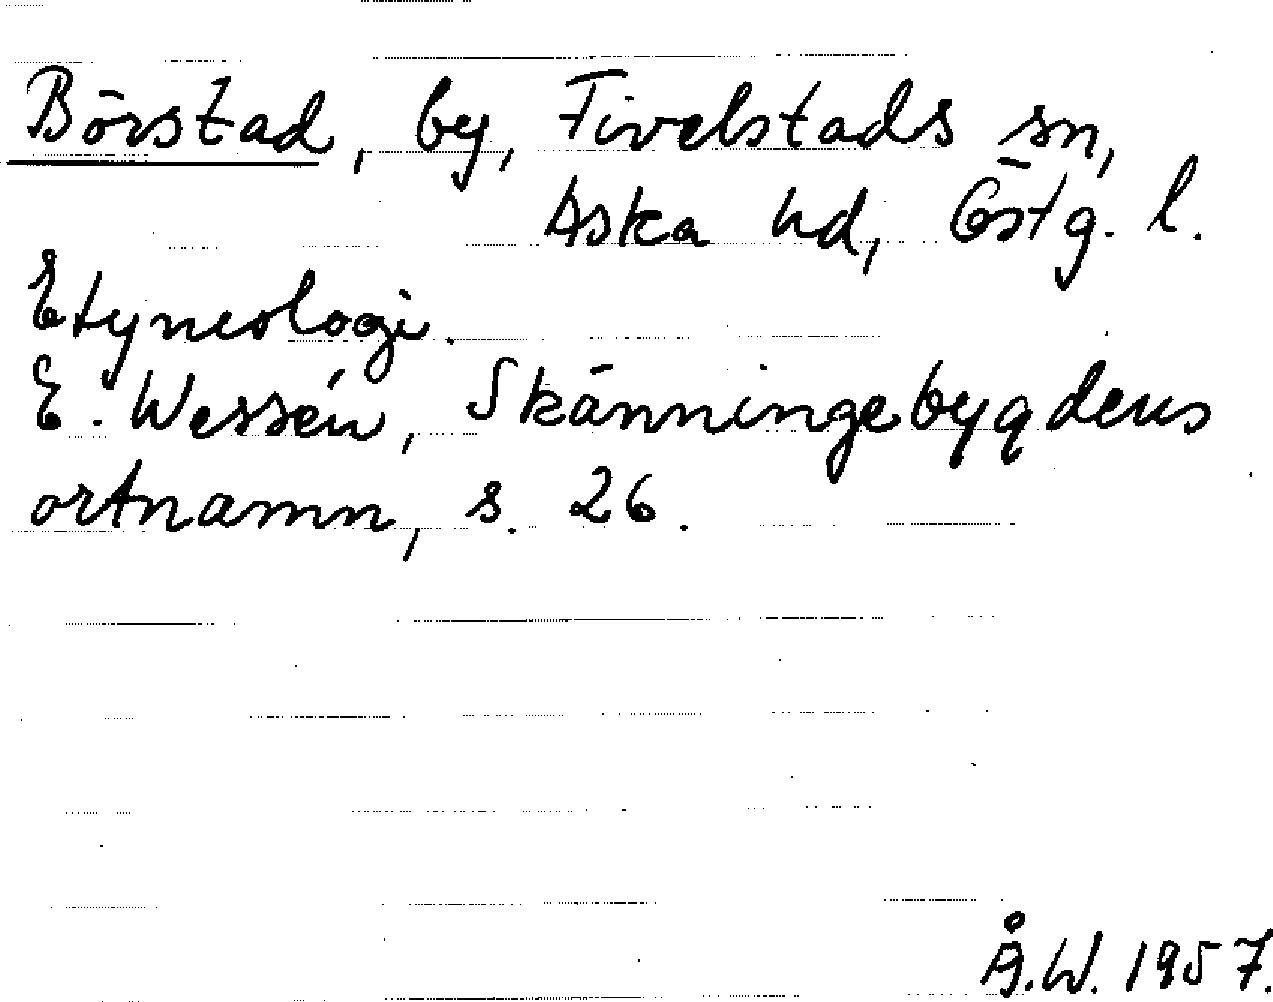 Börstad, by, Fivelstads sn,
Aska hd, Östg. l.
Etymologi.
E. Wessén, Skänningebygdens
ortnamn, s. 26.
Å.W. 1957.